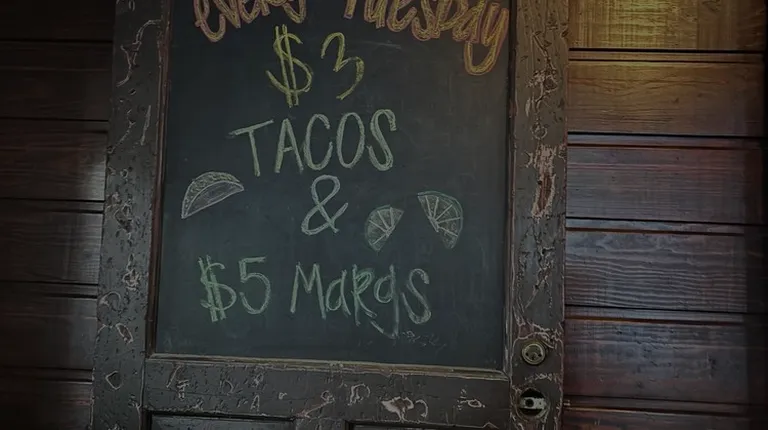 every Tuesday
$3
TACOS
&
$5 Margs